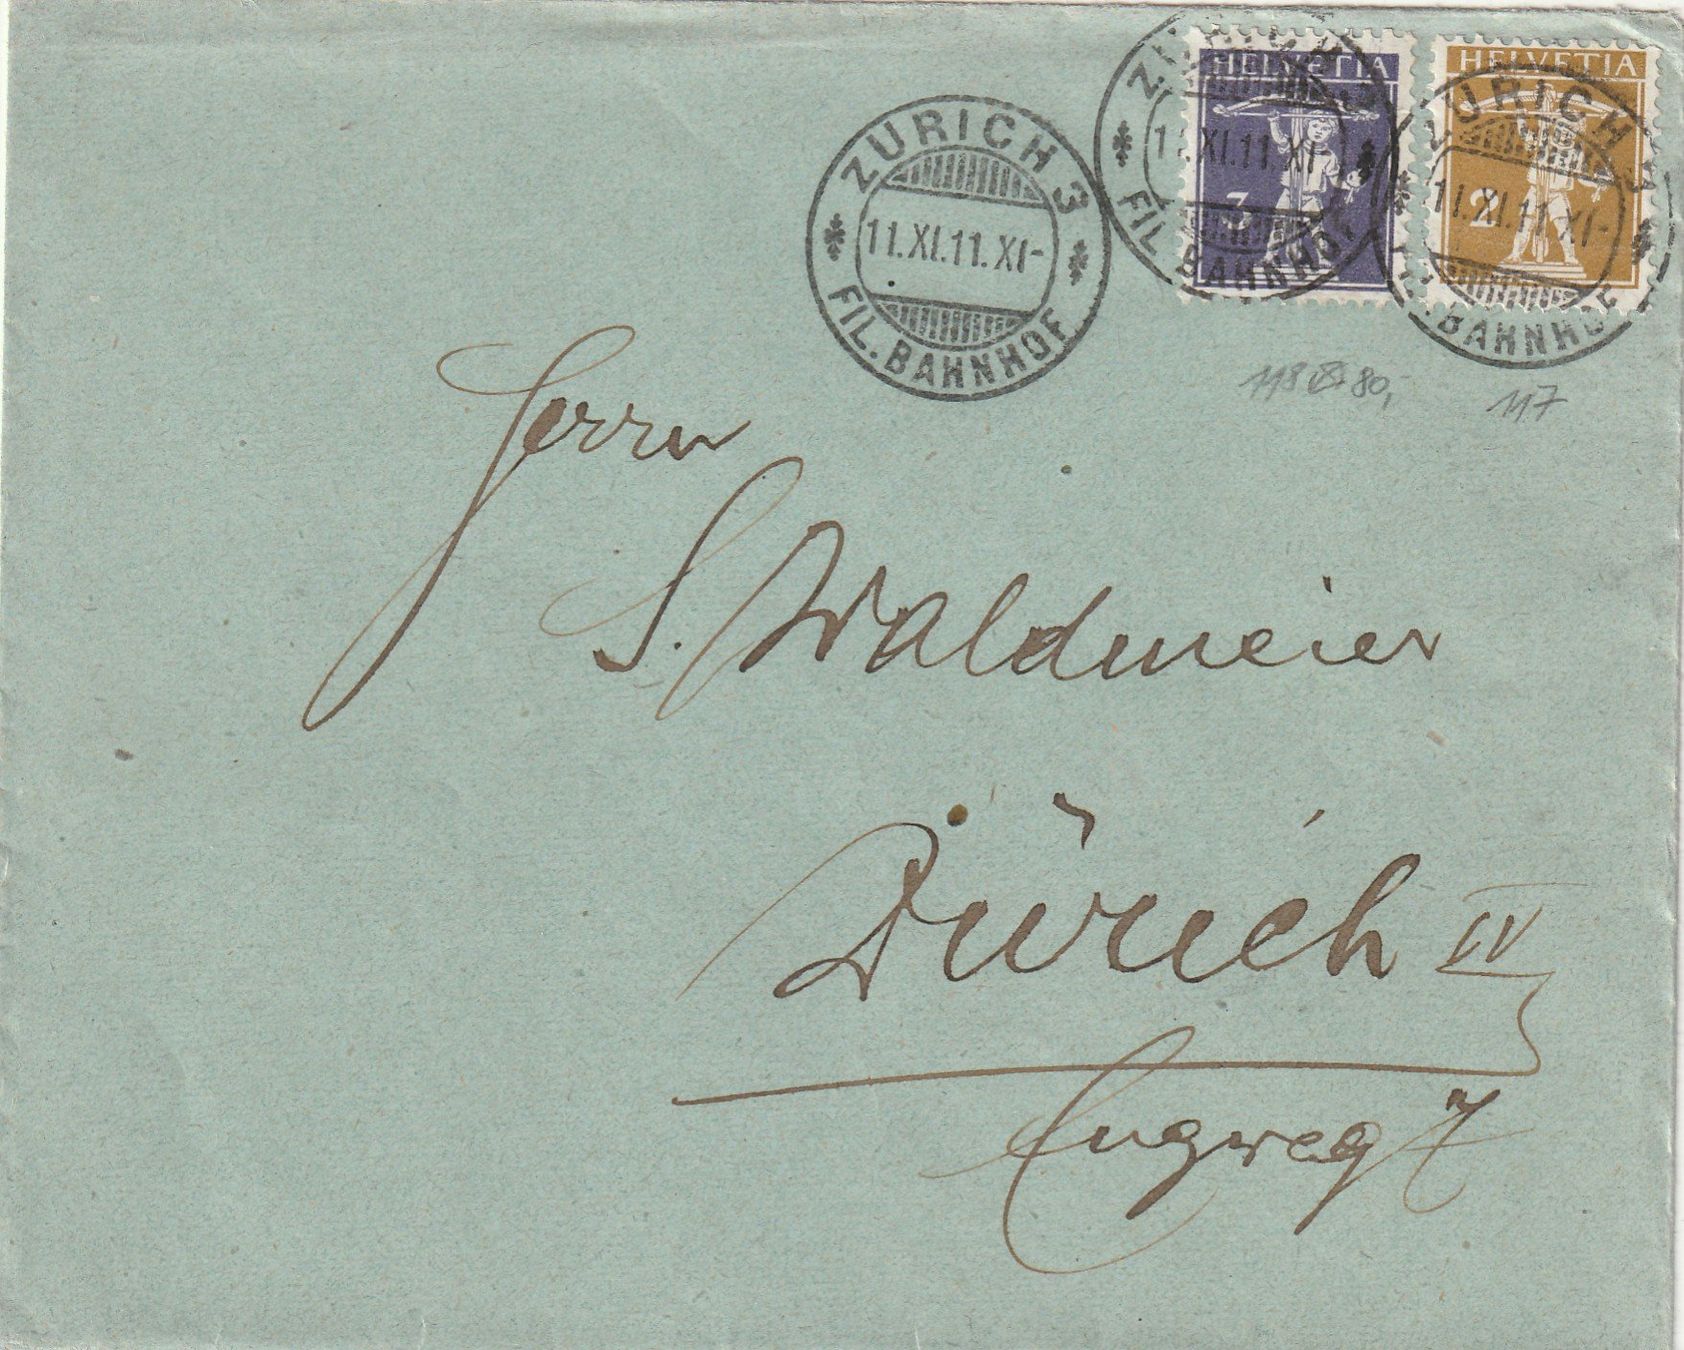 ZÜRICH 3
11.XI.11.XI-
FIL. BAHNHOF
HELVETIA
3
ZÜRICH 3
11.XI.11.XI-
FIL. BAHNHOF
HELVETIA
2
ZÜRICH 3
11.XI.11.XI-
FIL. BAHNHOF
118 80,-
117
Herrn
S. Waldmeier
Zürich IV
Engweg 7